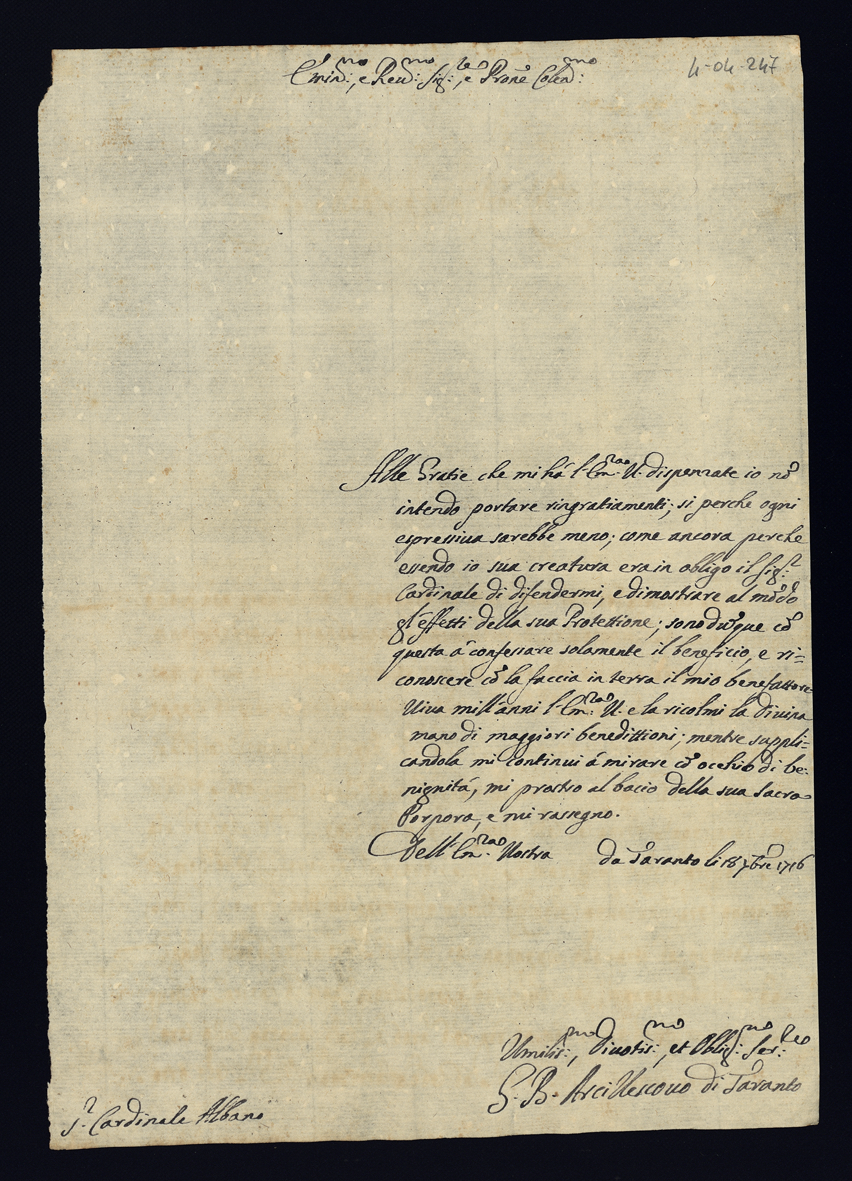 4-04-247
Emin:mo, e Reu:mo Sig:re, e Prone Colen:mo
Alle Gratie che mi há l'Em:za V. dispenzate io nō
intendo portare ringratiamenti; si perche ogni
espressiua sarebbe meno; come ancora perche
essendo io sua creatura era in obligo il Sig:r
Cardinale di difendermi, e dimostrare al mōdo
gl'effetti della sua Protettione; sono dūque cō
questa á confessare solamente il beneficio, e ri=
conoscere cō la faccia in terra il mio benefattore
Viua mill'anni l'Em:za V. e la ricolmi la diuina
mano di maggiori benedittioni; mentre suppli=
candola mi continui á mirare cō occhio di be:
nignitá, mi prostro al bacio della sua Sacra
Porpora, e mi rassegno.
Dell'Em:za Vostra da Tāranto li 18 7bre 1716
Umilis:mo, Diuotis:mo, et Oblig:mo Ser:re
G. B. ArciVescouo di Tāranto
S.r Cardinale Albano